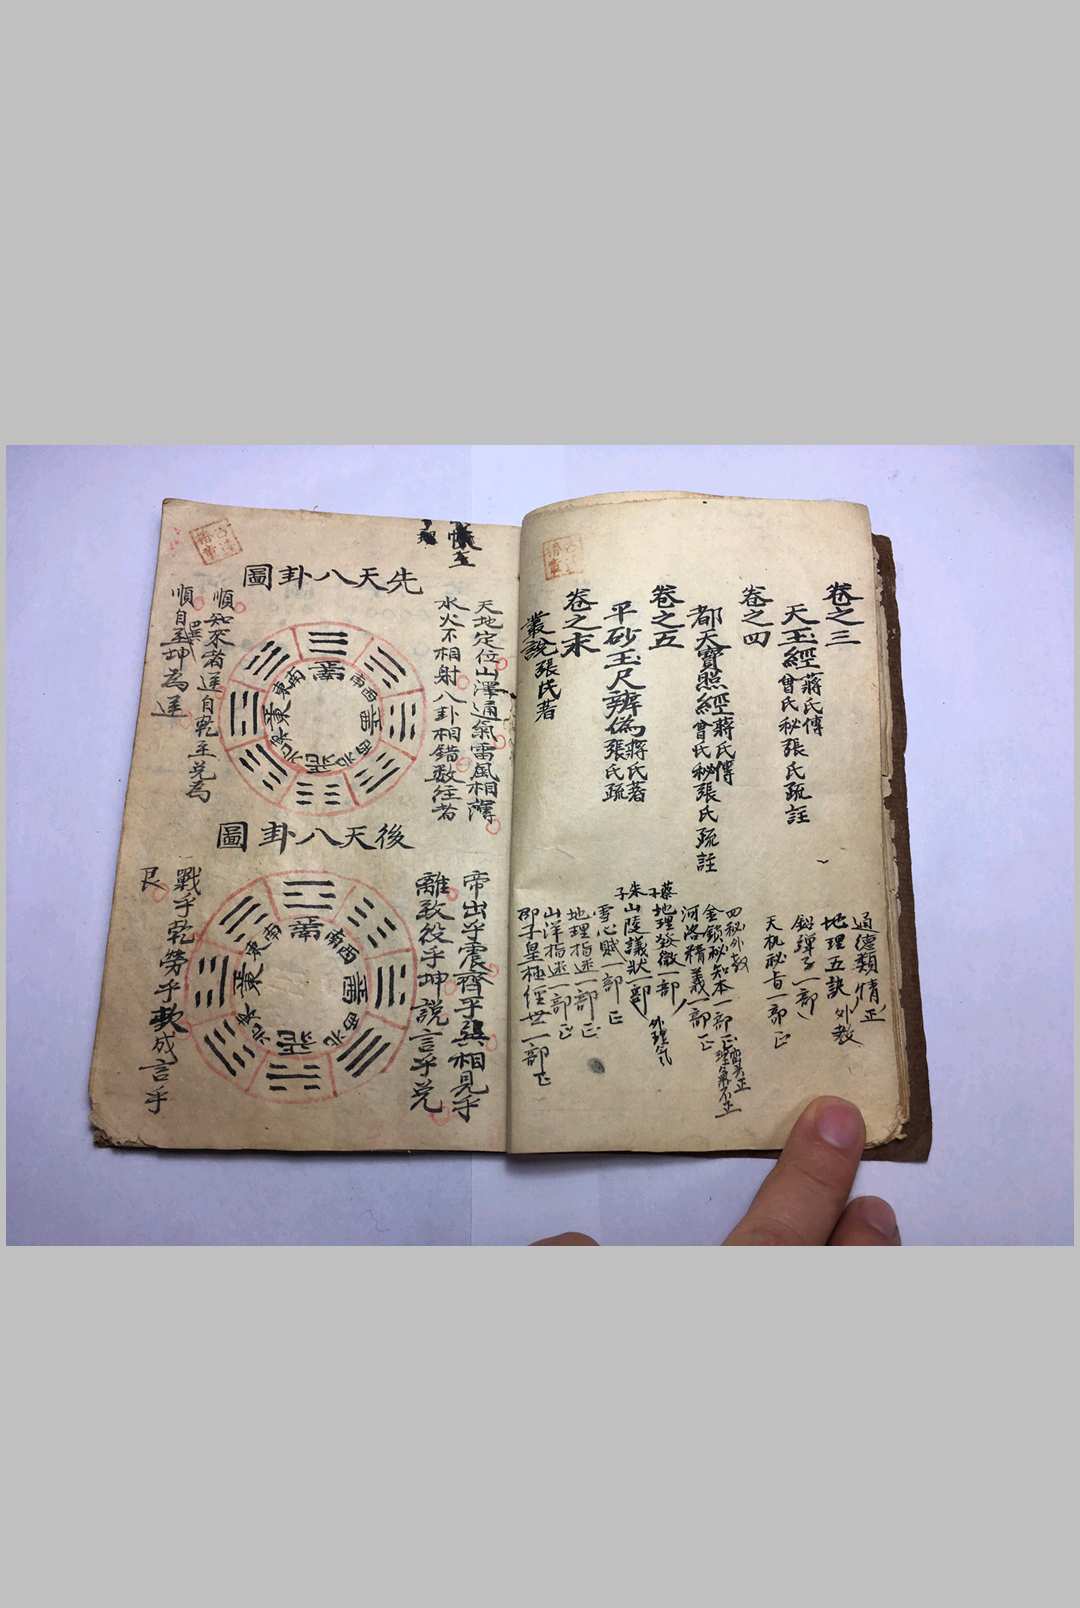 卷之三
天玉經 蔣氏傳
曾氏秘 張氏疏註
卷之四
都天寶照經 蔣氏傳
曾氏秘 張氏疏註
卷之五
平砂玉尺辨偽 蔣氏著
張氏疏
卷之末
叢說 張氏著
通德類情 正
地理五訣 外教
鉛彈子一部
天机秘旨一部 正
四秘外教
金鎖秘知本一部 正
巒頭正
理氣不正
河洛精義一部 正
蔡子 地理發微一部
朱子 山陵議狀一部
外理氣
雪心賦一部 正
地理指迷一部 正
山洋指迷一部 正
邵子皇極經世一部 正
先天八卦圖
天地定位山澤通氣雷風相薄
水火不相射八卦相錯數往者
南
西南
西
西北
北
東北
東
東南
順知來者逆自乾至兌為
順自巽坤為逆
後天八卦圖
帝出乎震齊乎巽相見乎
離致役乎坤說言乎兌
南
西南
西
西北
北
東北
東
東南
戰乎乾勞乎坎成言乎
艮